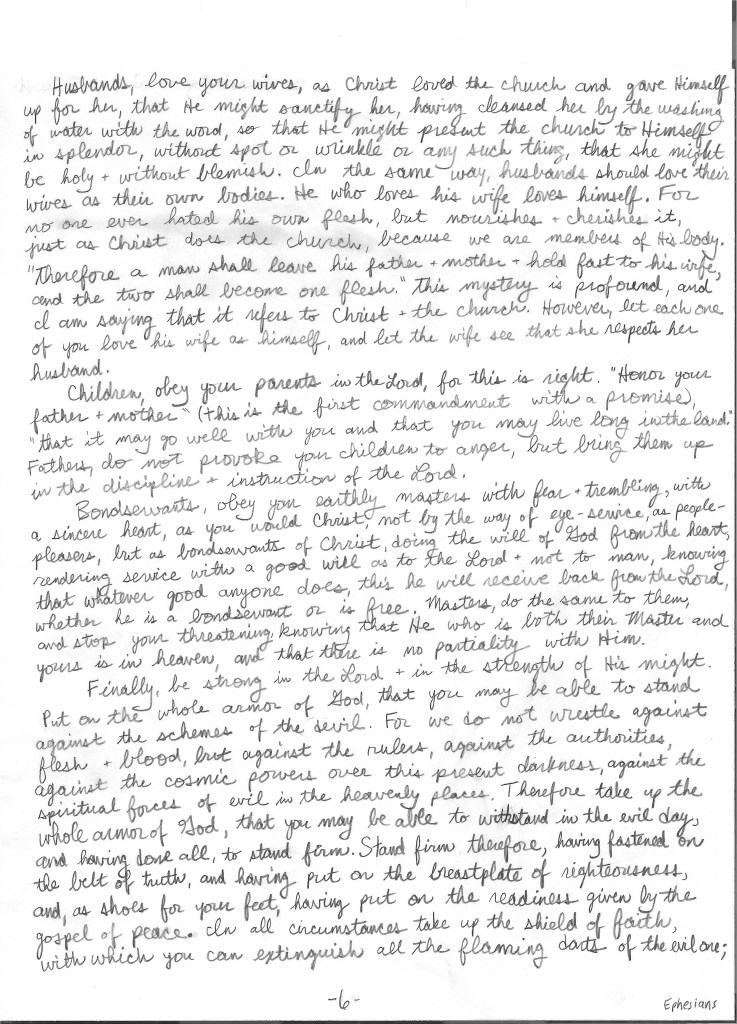 Husbands, love your wives, as Christ loved the church and gave Himself
up for her, that He might sanctify her, having cleansed her by the washing
of water with the word, so that He might present the church to Himself
in splendor, without spot or wrinkle or any such thing, that she might
be holy + without blemish. In the same way, husbands should love their
wives as their own bodies. He who loves his wife loves himself. For
no one ever hated his own flesh, but nourishes + cherishes it,
just as Christ does the church, because we are members of His body.
"Therefore a man shall leave his father + mother + hold fast to his wife,
and the two shall become one flesh." This mystery is profound, and
I am saying that it refers to Christ + the church. However, let each one
of you love his wife as himself, and let the wife see that she respects her
husband.
Children, obey your parents in the Lord, for this is right. "Honor your
father + mother" (this is the first commandment with a promise),
"that it may go well with you and that you may live long in the land."
Fathers, do not provoke your children to anger, but bring them up
in the discipline + instruction of the Lord.
Bondservants, obey your earthly masters with fear + trembling, with
a sincere heart, as you would Christ, not by the way of eye-service, as people-
pleasers, but as bondservants of Christ, doing the will of God from the heart,
rendering service with a good will as to the Lord + not to man, knowing
that whatever good anyone does, this he will receive back from the Lord,
whether he is a bondservant or is free. Masters, do the same to them,
and stop your threatening, knowing that He who is both their Master and
yours is in heaven, and that there is no partiality with Him.
Finally, be strong in the Lord + in the strength of His might.
Put on the whole armor of God, that you may be able to stand
against the schemes of the devil. For we do not wrestle against
flesh + blood, but against the rulers, against the authorities,
against the cosmic powers over this present darkness, against the
spiritual forces of evil in the heavenly places. Therefore take up the
whole armor of God, that you may be able to withstand in the evil day,
and having done all, to stand firm. Stand firm therefore, having fastened on
the belt of truth, and having put on the breastplate of righteousness,
and, as shoes for your feet, having put on the readiness given by the
gospel of peace. In all circumstances take up the shield of faith,
with which you can extinguish all the flaming darts of the evil one;
-6-
Ephesians